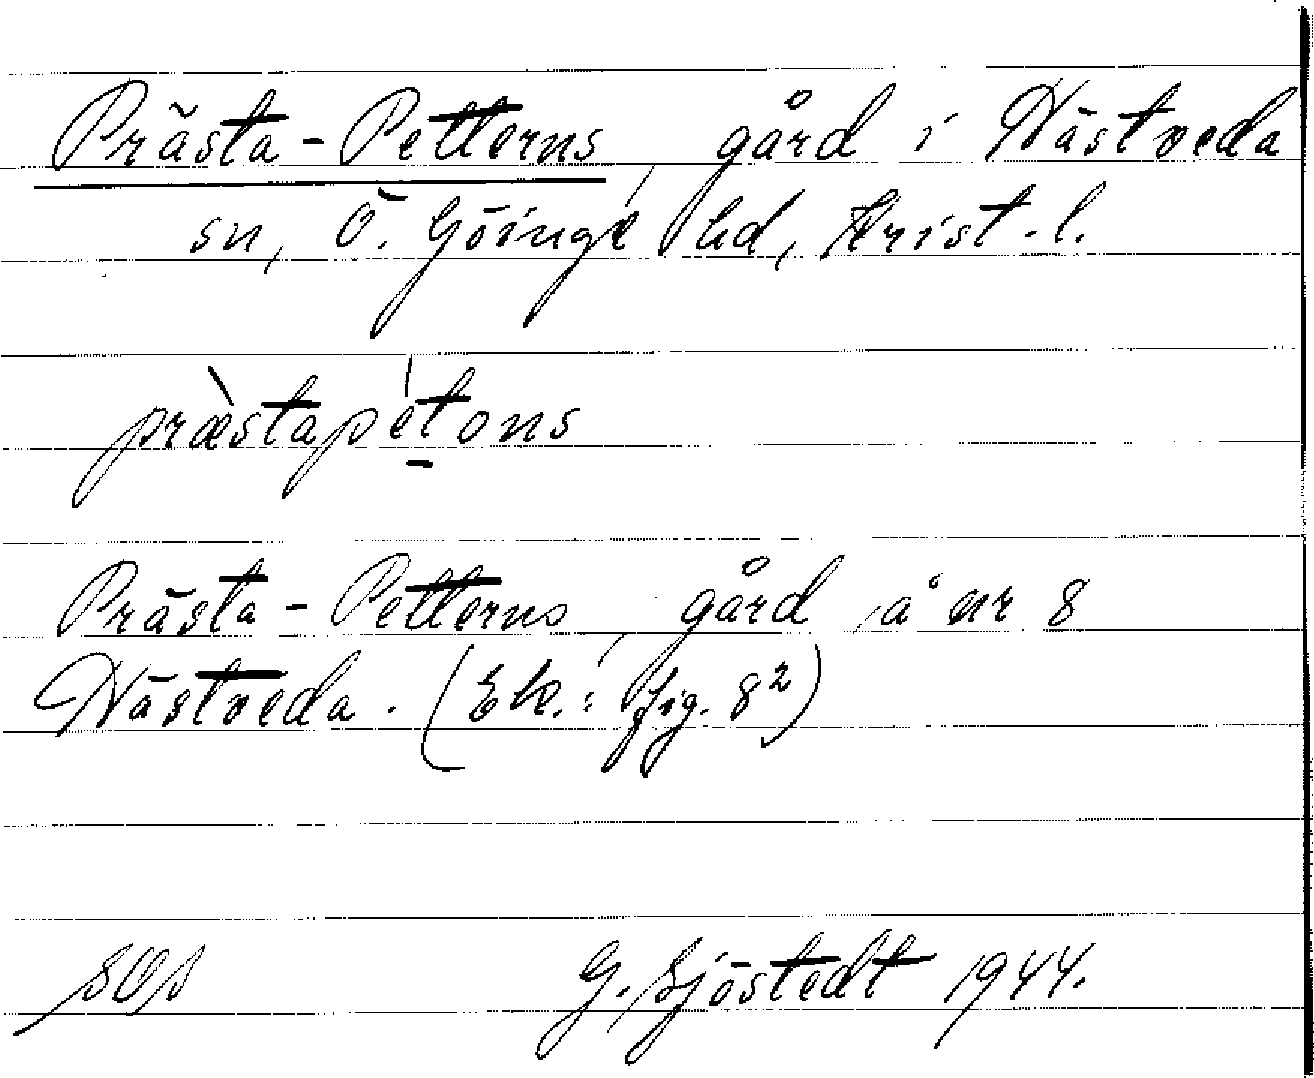 Prästa-Petterns, gård i Hästveda
sn, Ö. Göinge hd, Krist. l.
præ̀stapétons
Prästa-Petterns, gård å nr 8
Hästveda. (Ek.: fig. 8²)
SOS G. Sjöstedt 1944.